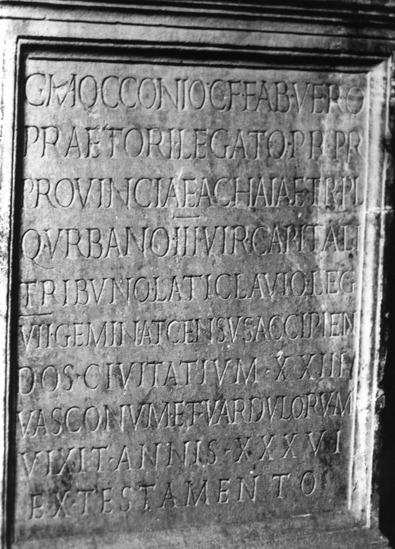 C·MOCCONIO·C·F·FAB·VERO
PRAETORI·LEGATO·PR·PR
PROVINCIAE·ACHAIAE·TR·PL
Q·VRBANO·IIIIVIR·CAPITALI
TRIBVNO·LATICLAVIO·LEG
VII·GEMINAT·CENSVS·ACCIPIEN
DOS·CIVITATIVM·XXIII
VASCONVM·ET·VARDVLORVM
VIXIT·ANNIS·XXXVI
EX·TESTAMENTO